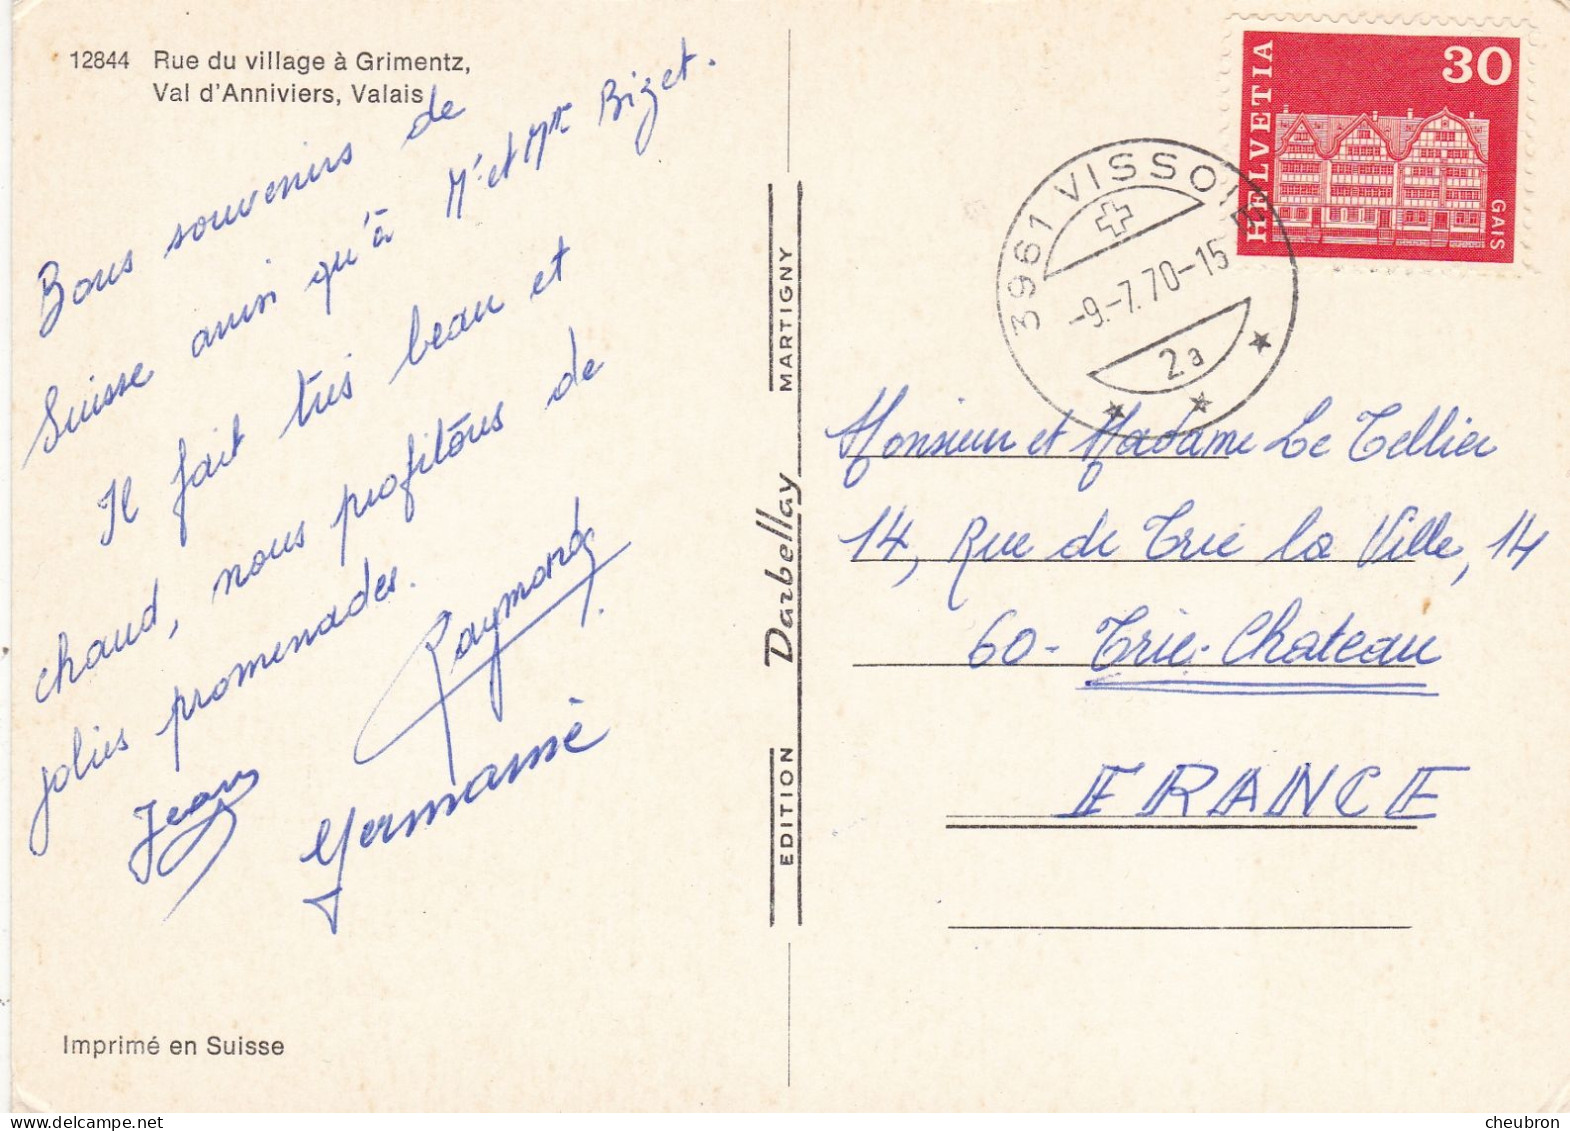 12844 Rue du village à Grimentz,
Val d'Anniviers, Valais
Bons souvenirs de
Suisse ainsi qu'à Mr et Mme Bizet.
Il fait très beau et
chaud, nous profitons de
jolies promenades.
Raymonde
Jean
Germaine
Imprimé en Suisse
EDITION Darbellay MARTIGNY
HELVETIA
30
GAIS
3961 VISSOIE
-9.-7.70-15
2a
Monsieur et Madame Le Tellier
14, Rue de Trie la Ville, 14
60- Trie-Chateau
FRANCE
cheubron.com